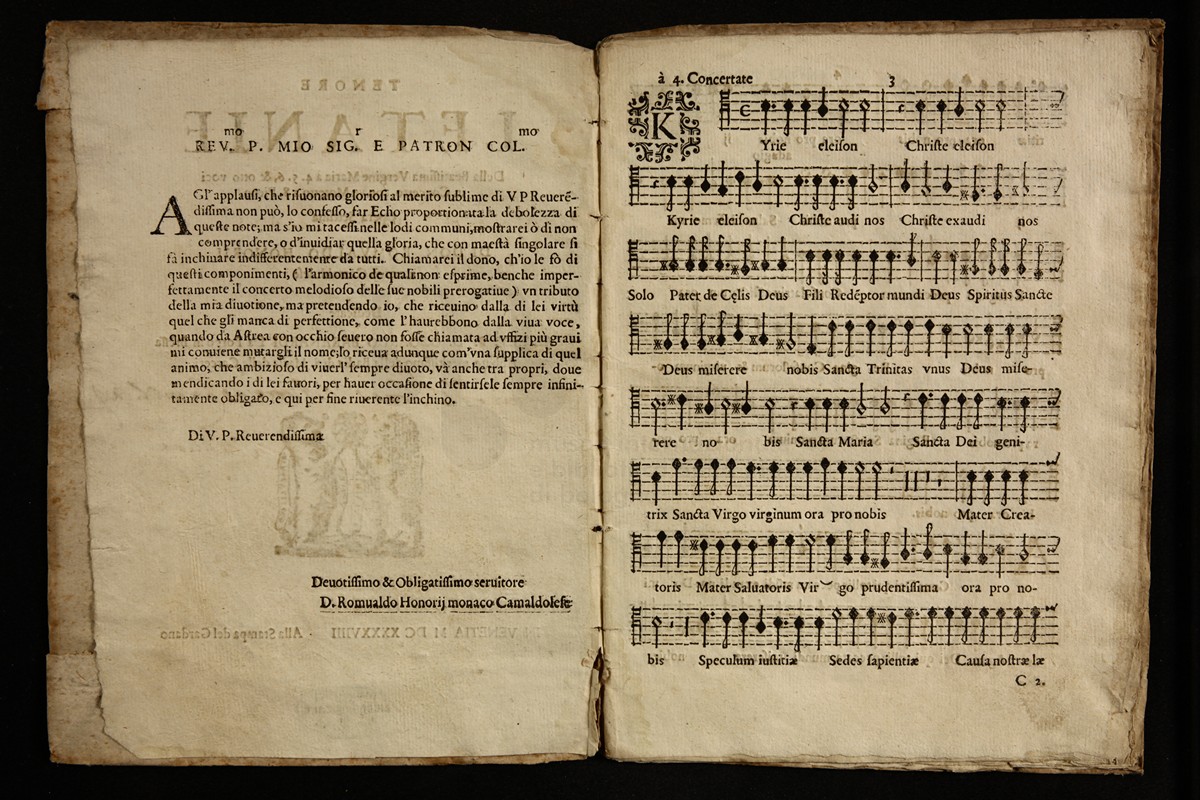 mo r mo
REV. P. MIO SIG. E PATRON COL.
AGl'applausi, che risuonano gloriosi al merito sublime di V P Reuerẽ-
dissima non può, lo confesso, far Echo proportionata la debolezza di
queste note; ma s'io mi tacessi nelle lodi communi, mostrarei ò di non
comprendere, o d'inuidiar quella gloria, che con maestà singolare si
fà inchinare indifferentemente da tutti. Chiamarei il dono, ch'io le fò di
questi componimenti, ( l'armonico de quali non esprime, benche imper-
fettamente il concerto melodioso delle sue nobili prerogatiue ) vn tributo
della mia diuotione, ma pretendendo io, che riceuino dalla di lei virtù
quel che gli manca di perfettione, come l'haurebbono dalla viua voce,
quando da Astrea con occhio seuero non fosse chiamata ad vffizi più graui
mi conuiene mutargli il nome; lo riceua adunque com'vna supplica di quel
animo, che ambizioso di viuerl' sempre diuoto, và anche tra propri, doue
mendicando i di lei fauori, per hauer occasione di sentirsele sempre infini-
tamente obligato, e qui per fine riuerente l'inchino.
Di V. P. Reuerendissima
Deuotissimo & Obligatissimo seruitore
D. Romualdo Honorij monaco Camaldolese
à 4. Concertate 3
KYrie eleison Christe eleison
Kyrie eleison Christe audi nos Christe exaudi nos
Solo Pater de Cęlis Deus Fili Redẽptor mundi Deus Spiritus Sancte
Deus miserere nobis Sancta Trinitas vnus Deus mise-
rere no- bis Sancta Maria Sancta Dei geni-
trix Sancta Virgo virginum ora pro nobis Mater Crea-
toris Mater Saluatoris Vir go prudentissima ora pro no-
bis Speculum iustitiæ Sedes sapientiæ Causa nostræ læ
C 2.